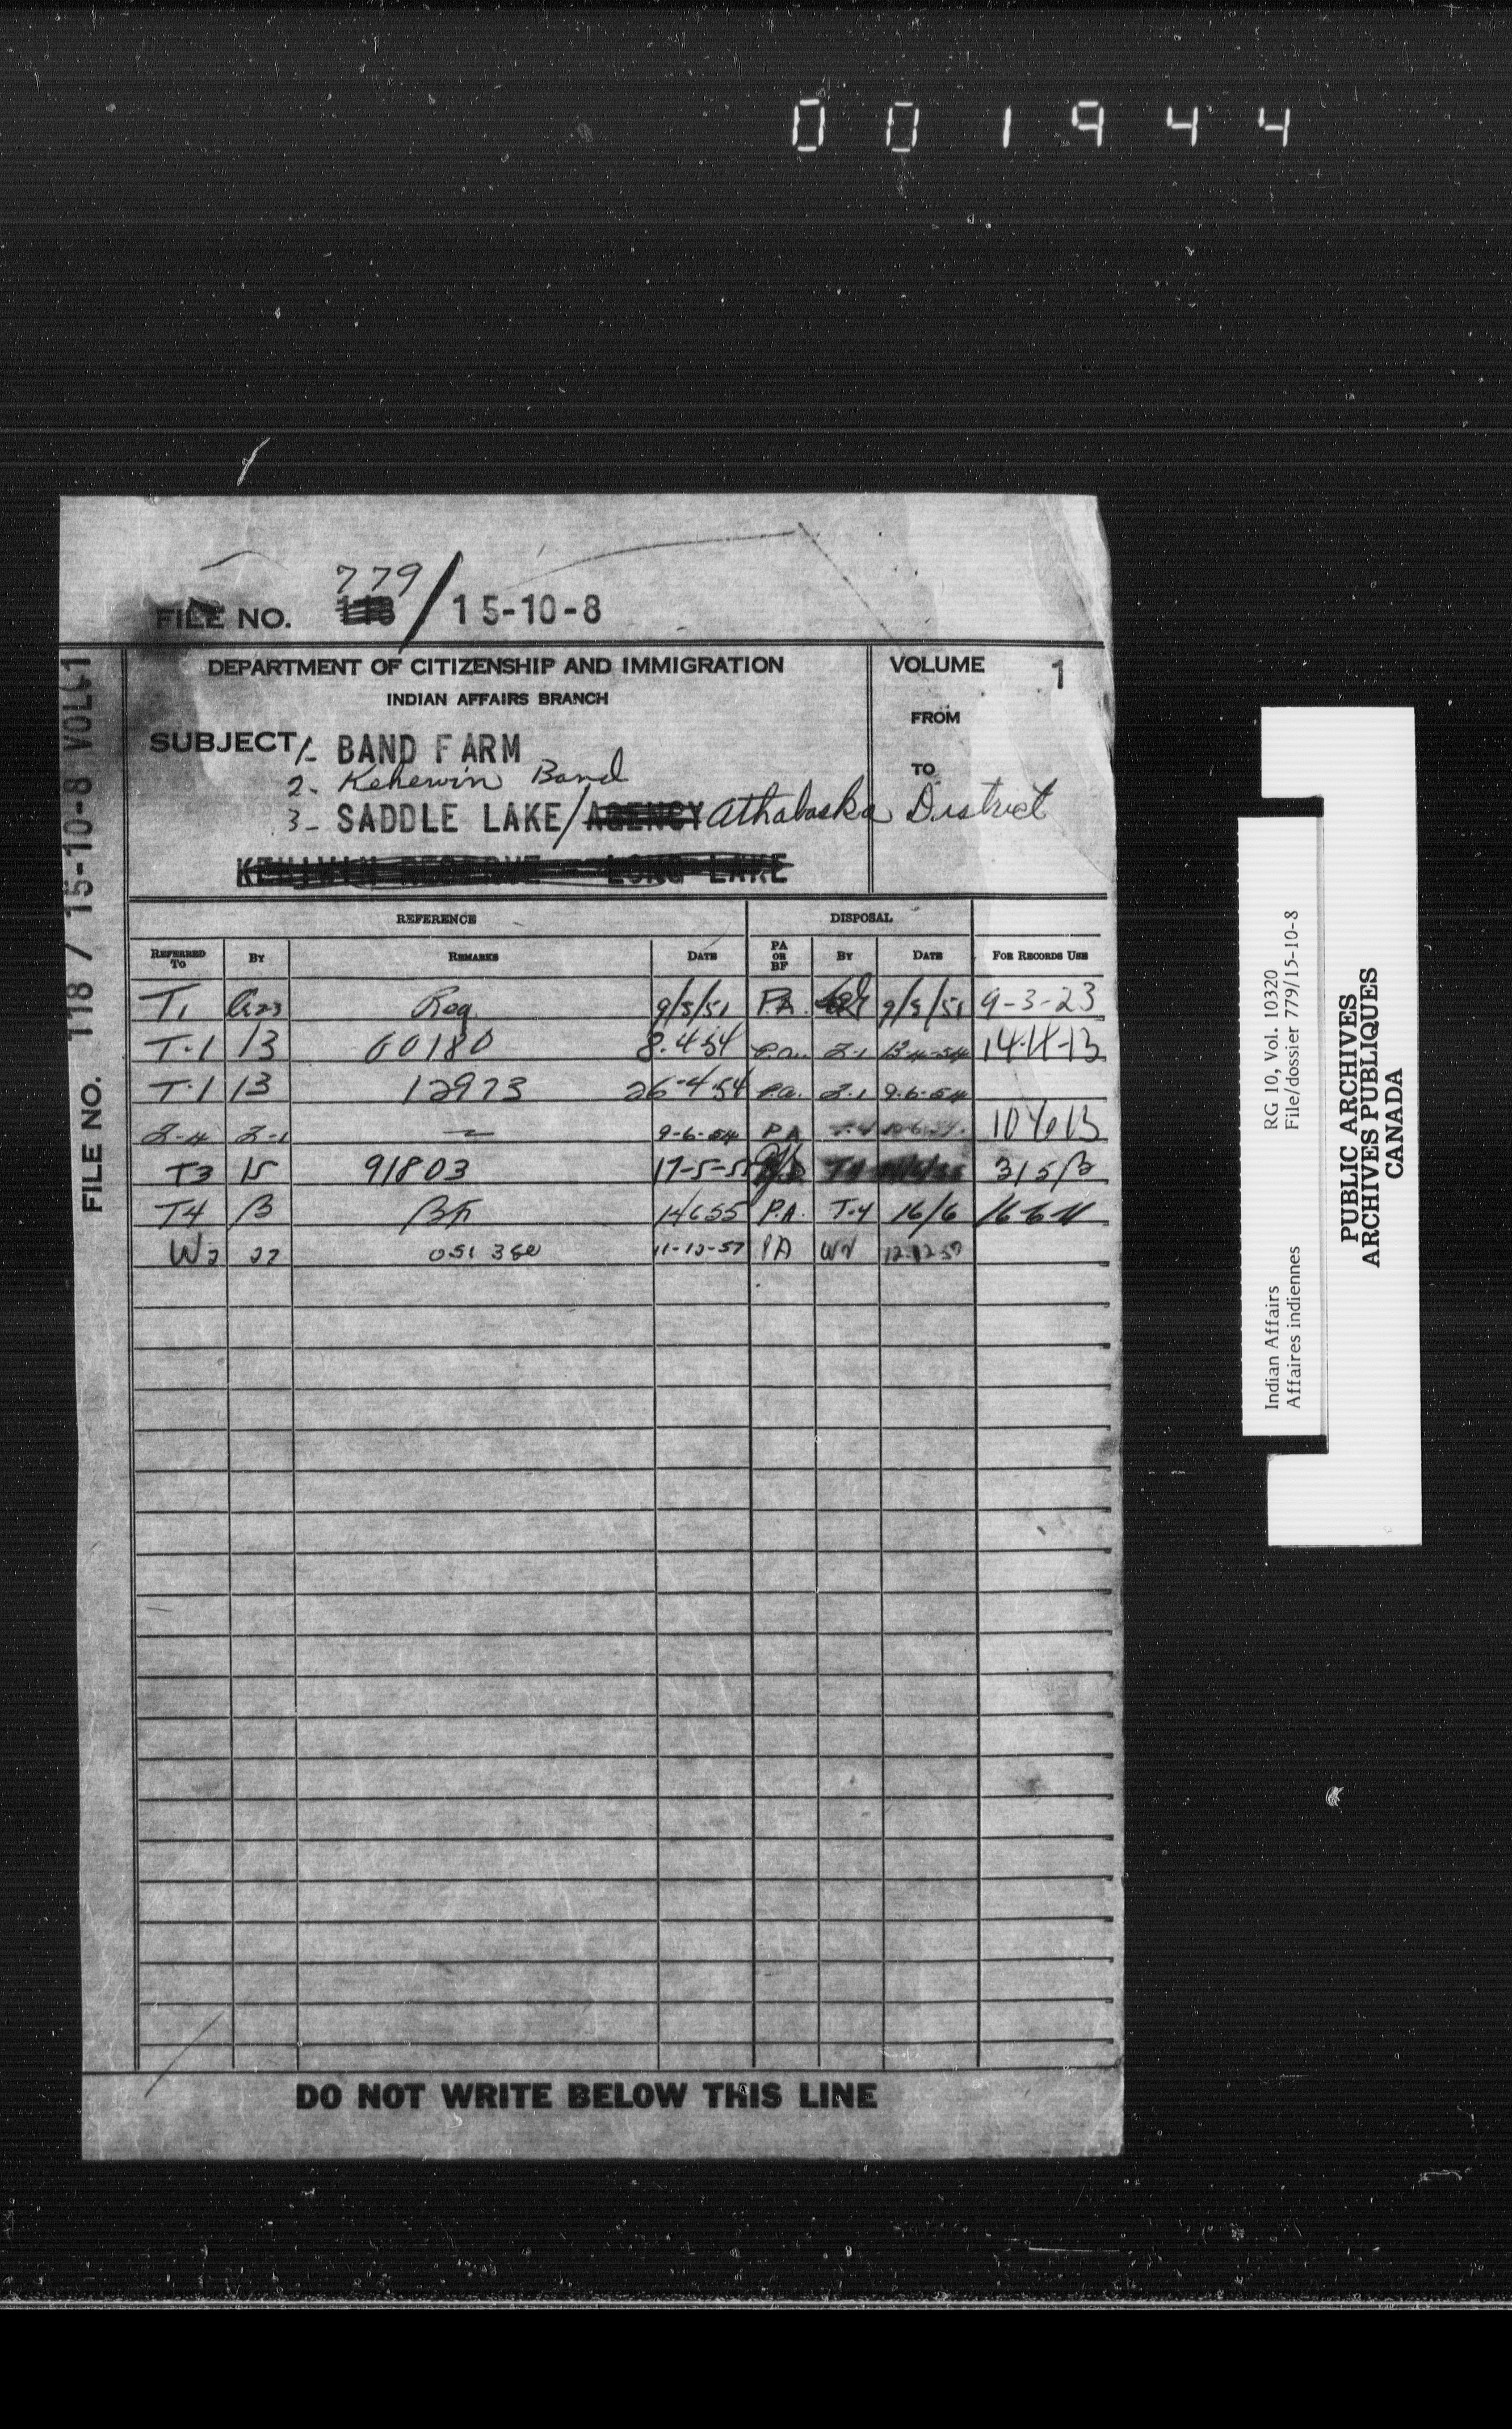 001944
779
FILE NO. 118 / 15-10-8
DEPARTMENT OF CITIZENSHIP AND IMMIGRATION
INDIAN AFFAIRS BRANCH
VOLUME 1
FROM
TO
SUBJECT 1- BAND FARM
2. Kehewin Band
3- SADDLE LAKE / AGENCY Athabaska District
KEHIWIN RESERVE - LONG LAKE
REFERENCE DISPOSAL
REFERRED TO BY REMARKS DATE PA OR BF BY DATE FOR RECORDS USE
T1 Reg 9/5/51 P.A. 9/5/51 9-3-23
T.1 13 60180 8.4.54 P.a. 2-1 13-4-54 14-4-13
T.1 13 12973 26-4-54 P.a. 2-1 9-6-54
2-4 2-1 — 9-6-54 PA
T3 15 91803 17-5-55
T4 B BF 14655 P.A. T-4 16/6
W2 22 11-12-57 PA 12-12-57
DO NOT WRITE BELOW THIS LINE
FILE NO. 118 / 15-10-8 VOL. 1
Indian Affairs RG 10, Vol. 10320
Affaires indiennes File/dossier 779/15-10-8
PUBLIC ARCHIVES
ARCHIVES PUBLIQUES
CANADA